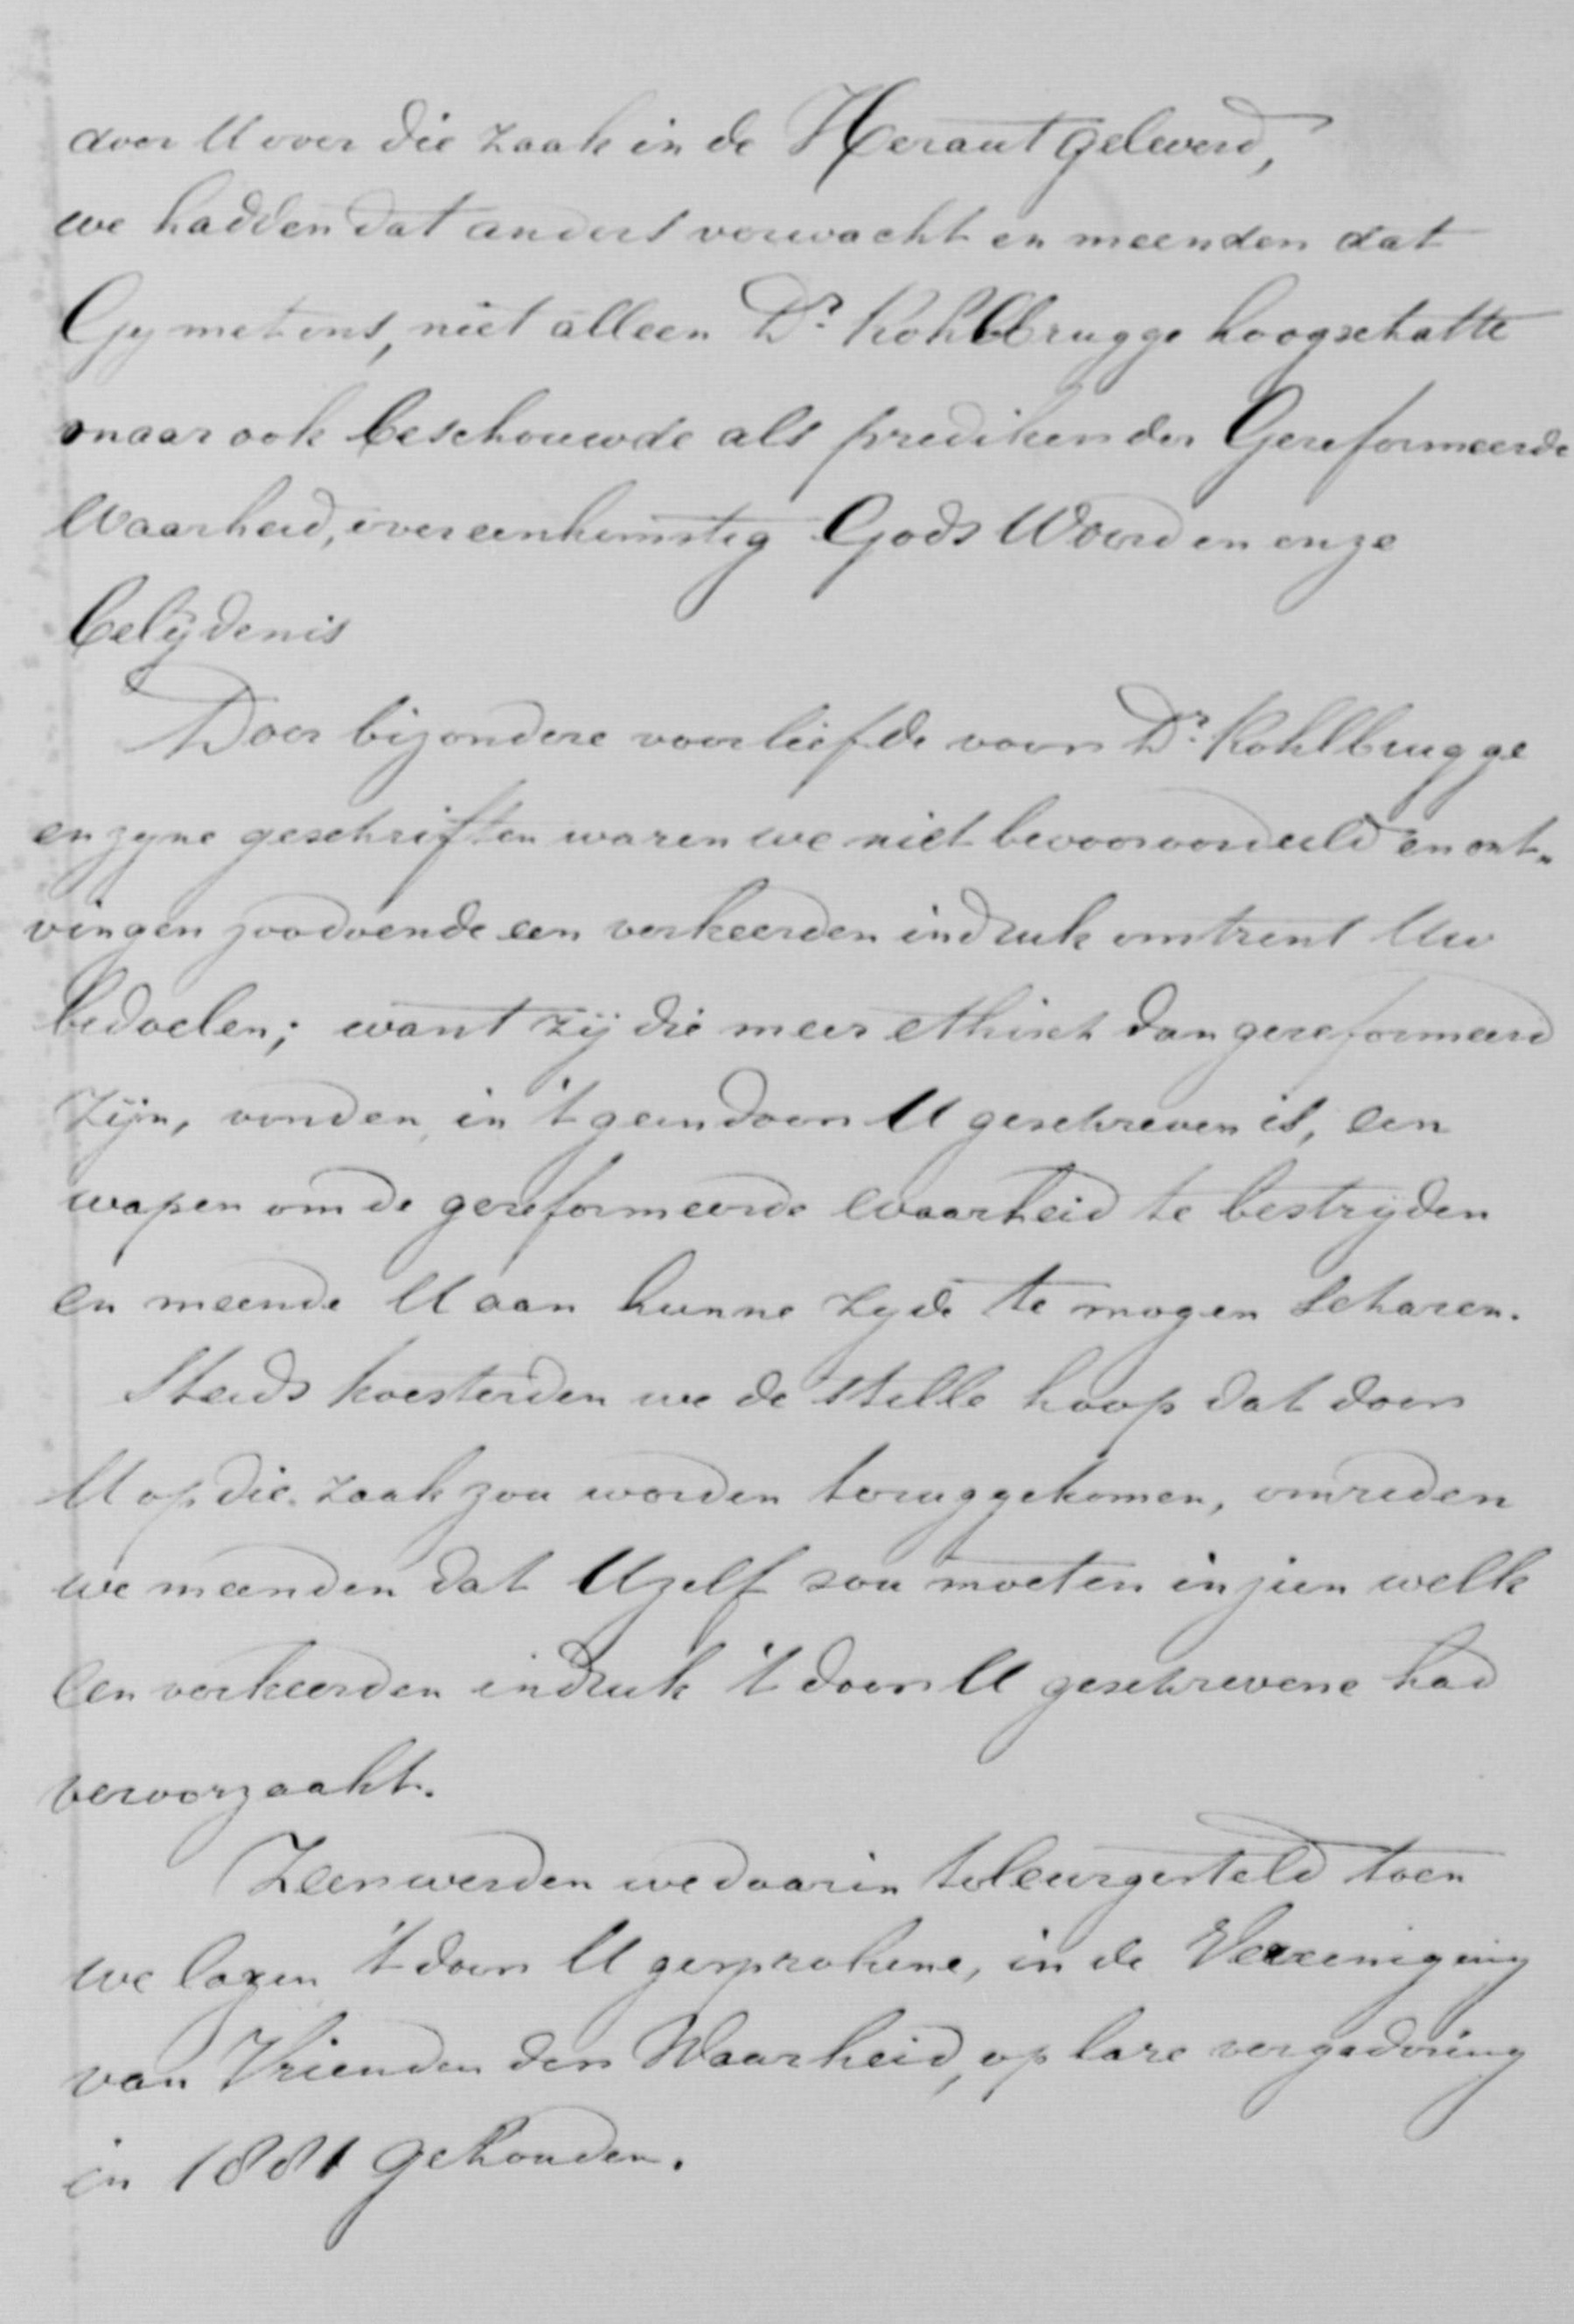 door U over die zaak in de Heraut geleverd,
we hadden dat anders verwacht en meenden dat
Gy met ons, niet alleen Dr. Kohlbrugge hoogschatte
maar ook beschouwde als prediker der Gereformeerde
Waarheid, overeenkomstig Gods Woord en onze
belijdenis
Door bijzondere voorliefde voor Dr. Kohlbrugge
en zyne geschriften waren we niet bevooroordeeld en ont-
vingen zoodoende een verkeerden indruk omtrent Uw
bedoelen; want zij die meer ethisch dan gereformeerd
zijn, vonden in 't geen door U geschreven is, een
wapen om de gereformeerde waarheid te bestryden
en meende U aan hunne zyde te mogen scharen.
Steeds koesterden we de stille hoop dat door
U op die zaak zou worden teruggekomen, omreden
we meenden dat Uzelf zou moeten inzien welk
een verkeerden indruk 't door U geschrevene had
veroorzaakt.
Zeer werden we daarin teleurgesteld toen
we lazen 't door U gesprokene, in de Vereeniging
van Vrienden der Waarheid, op hare vergadering
in 1881 gehouden.